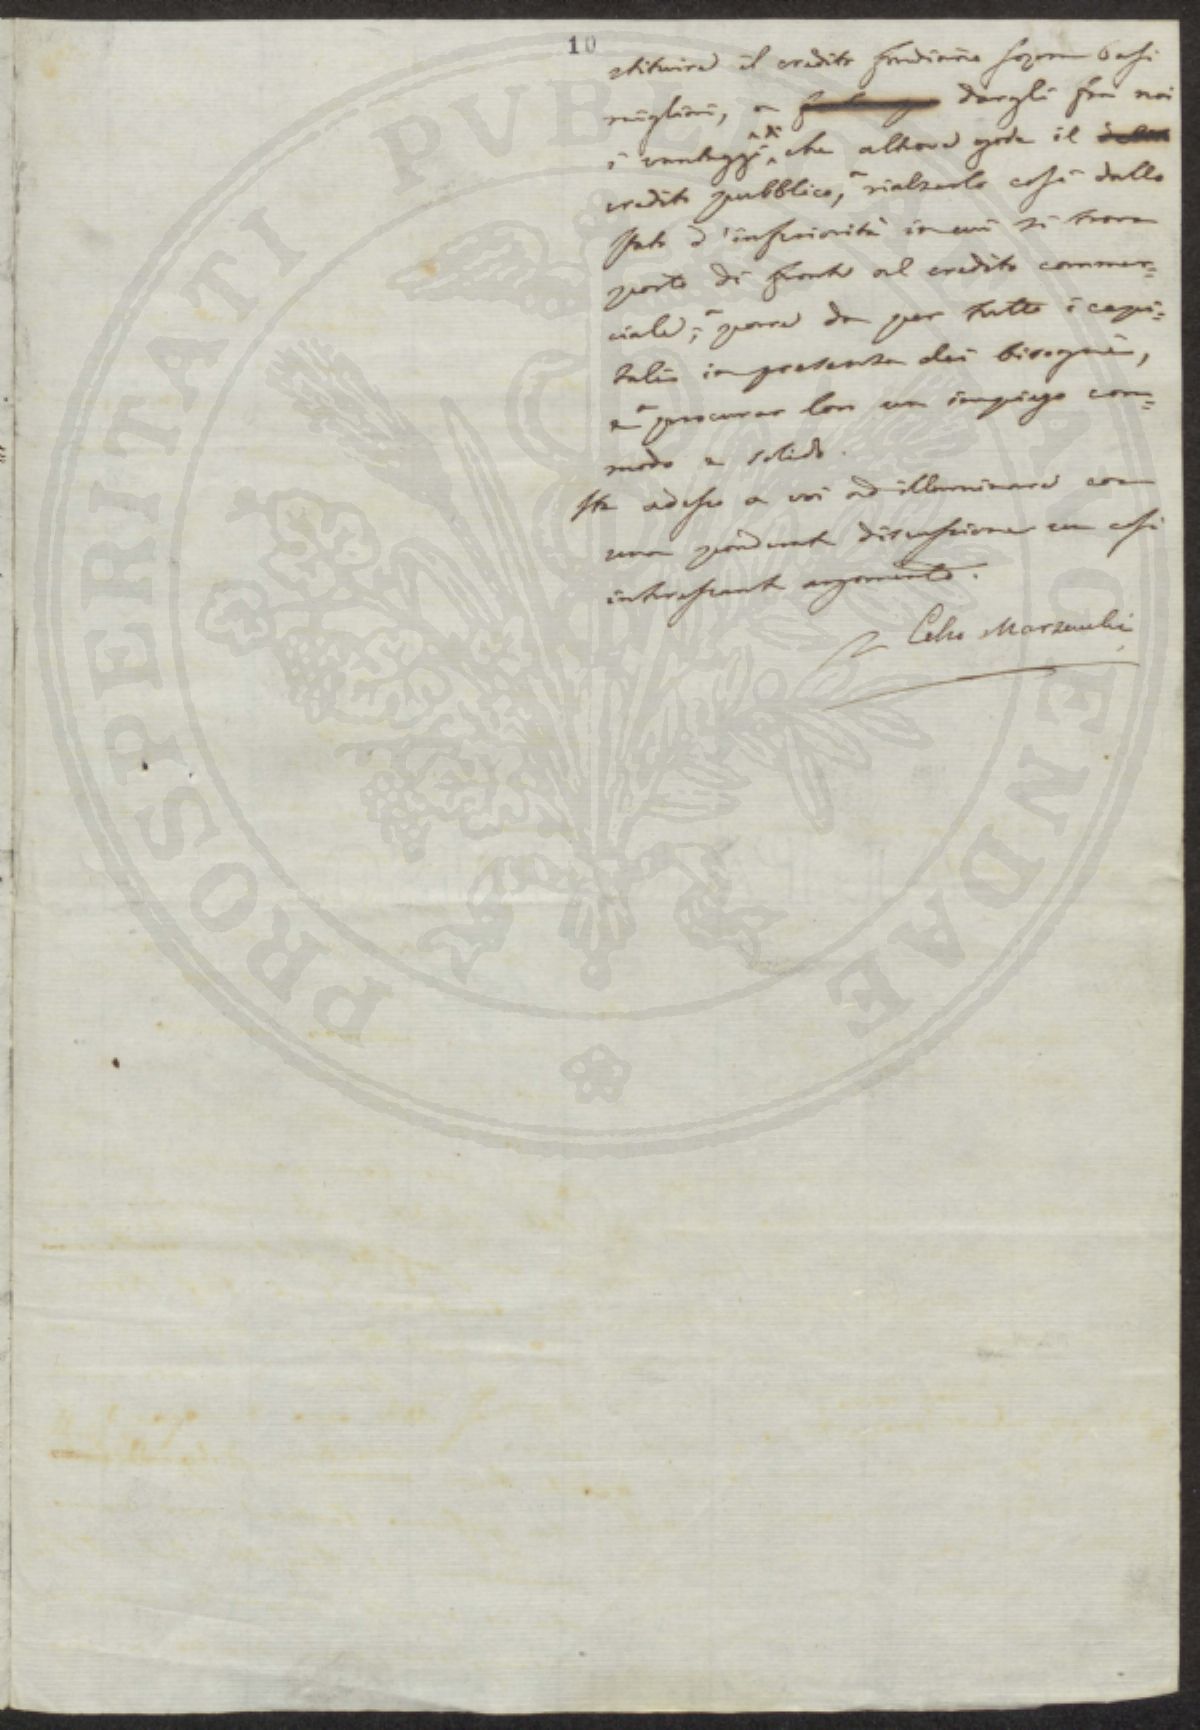 10
stituire il credito fondiario sopra basi
migliori, e dargli fra noi
i vantaggi, che altrove gode il
credito pubblico, a rialzarlo così dallo
stato d'inferiorità in cui si trova
posto di fronte al credito commer=
ciale; a porre da per tutto i capi=
tali in presenza dei bisogni,
e a procurar loro un impiego com=
modo e solido.
Sta adesso a voi ad illuminare con
una ponderata discussione un così
interessante argomento.
Celso Marzucchi
PVBLICAE AVGENDAE
PROSPERITATI